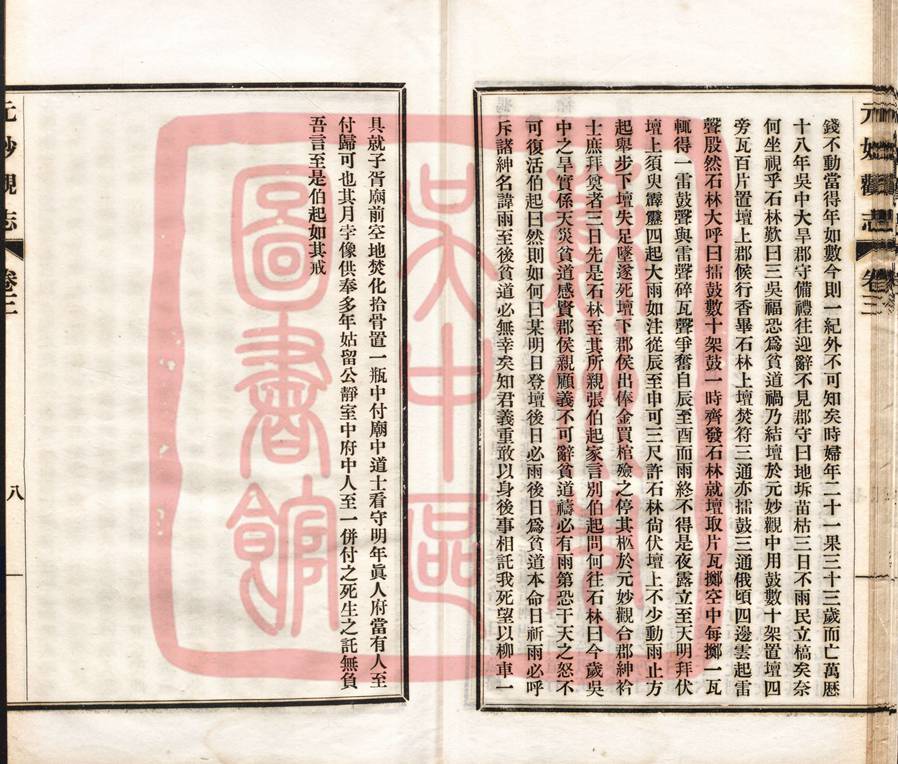 元妙觀志
卷三
錢不動當得年如數今則一紀外不可知矣時婦年二十一果三十三歲而亡萬曆
十八年吳中大旱郡守備禮往迎辭不見郡守曰地坼苗枯三日不雨民立槁矣奈
何坐視乎石林歎曰三吳福恐爲貧道禍乃結壇於元妙觀中用鼓數十架置壇四
旁瓦百片置壇上郡候行香畢石林上壇焚符三通亦擂鼓三通俄頃四邊雲起雷
聲殷然石林大呼曰擂鼓數十架鼓一時齊發石林就壇取片瓦擲空中每擲一瓦
輒得一雷鼓聲與雷聲碎瓦聲爭奮自辰至酉而雨終不得是夜露立至天明拜伏
壇上須臾霹靂四起大雨如注從辰至申可三尺許石林尙伏壇上不少動雨止方
起舉步下壇失足墜遂死壇下郡侯出俸金買棺殮之停其柩於元妙觀合郡紳衿
士庶拜奠者三日先是石林至其所親張伯起家言別伯起問何往石林曰今歲吳
中之旱實係天災貧道感賢郡侯親顧義不可辭貧道禱必有雨第恐干天之怒不
可復活伯起曰然則如何曰某明日登壇後日必雨後日爲貧道本命日祈雨必呼
斥諸神名諱雨至後貧道必無幸矣知君義重敢以身後事相託我死望以柳車一
具就子胥廟前空地焚化拾骨置一瓶中付廟中道士看守明年眞人府當有人至
付歸可也其月孛像供奉多年姑留公靜室中府中人至一併付之死生之託無負
吾言至是伯起如其戒
元妙觀志
卷三
八
蘇州市吳中區圖書館